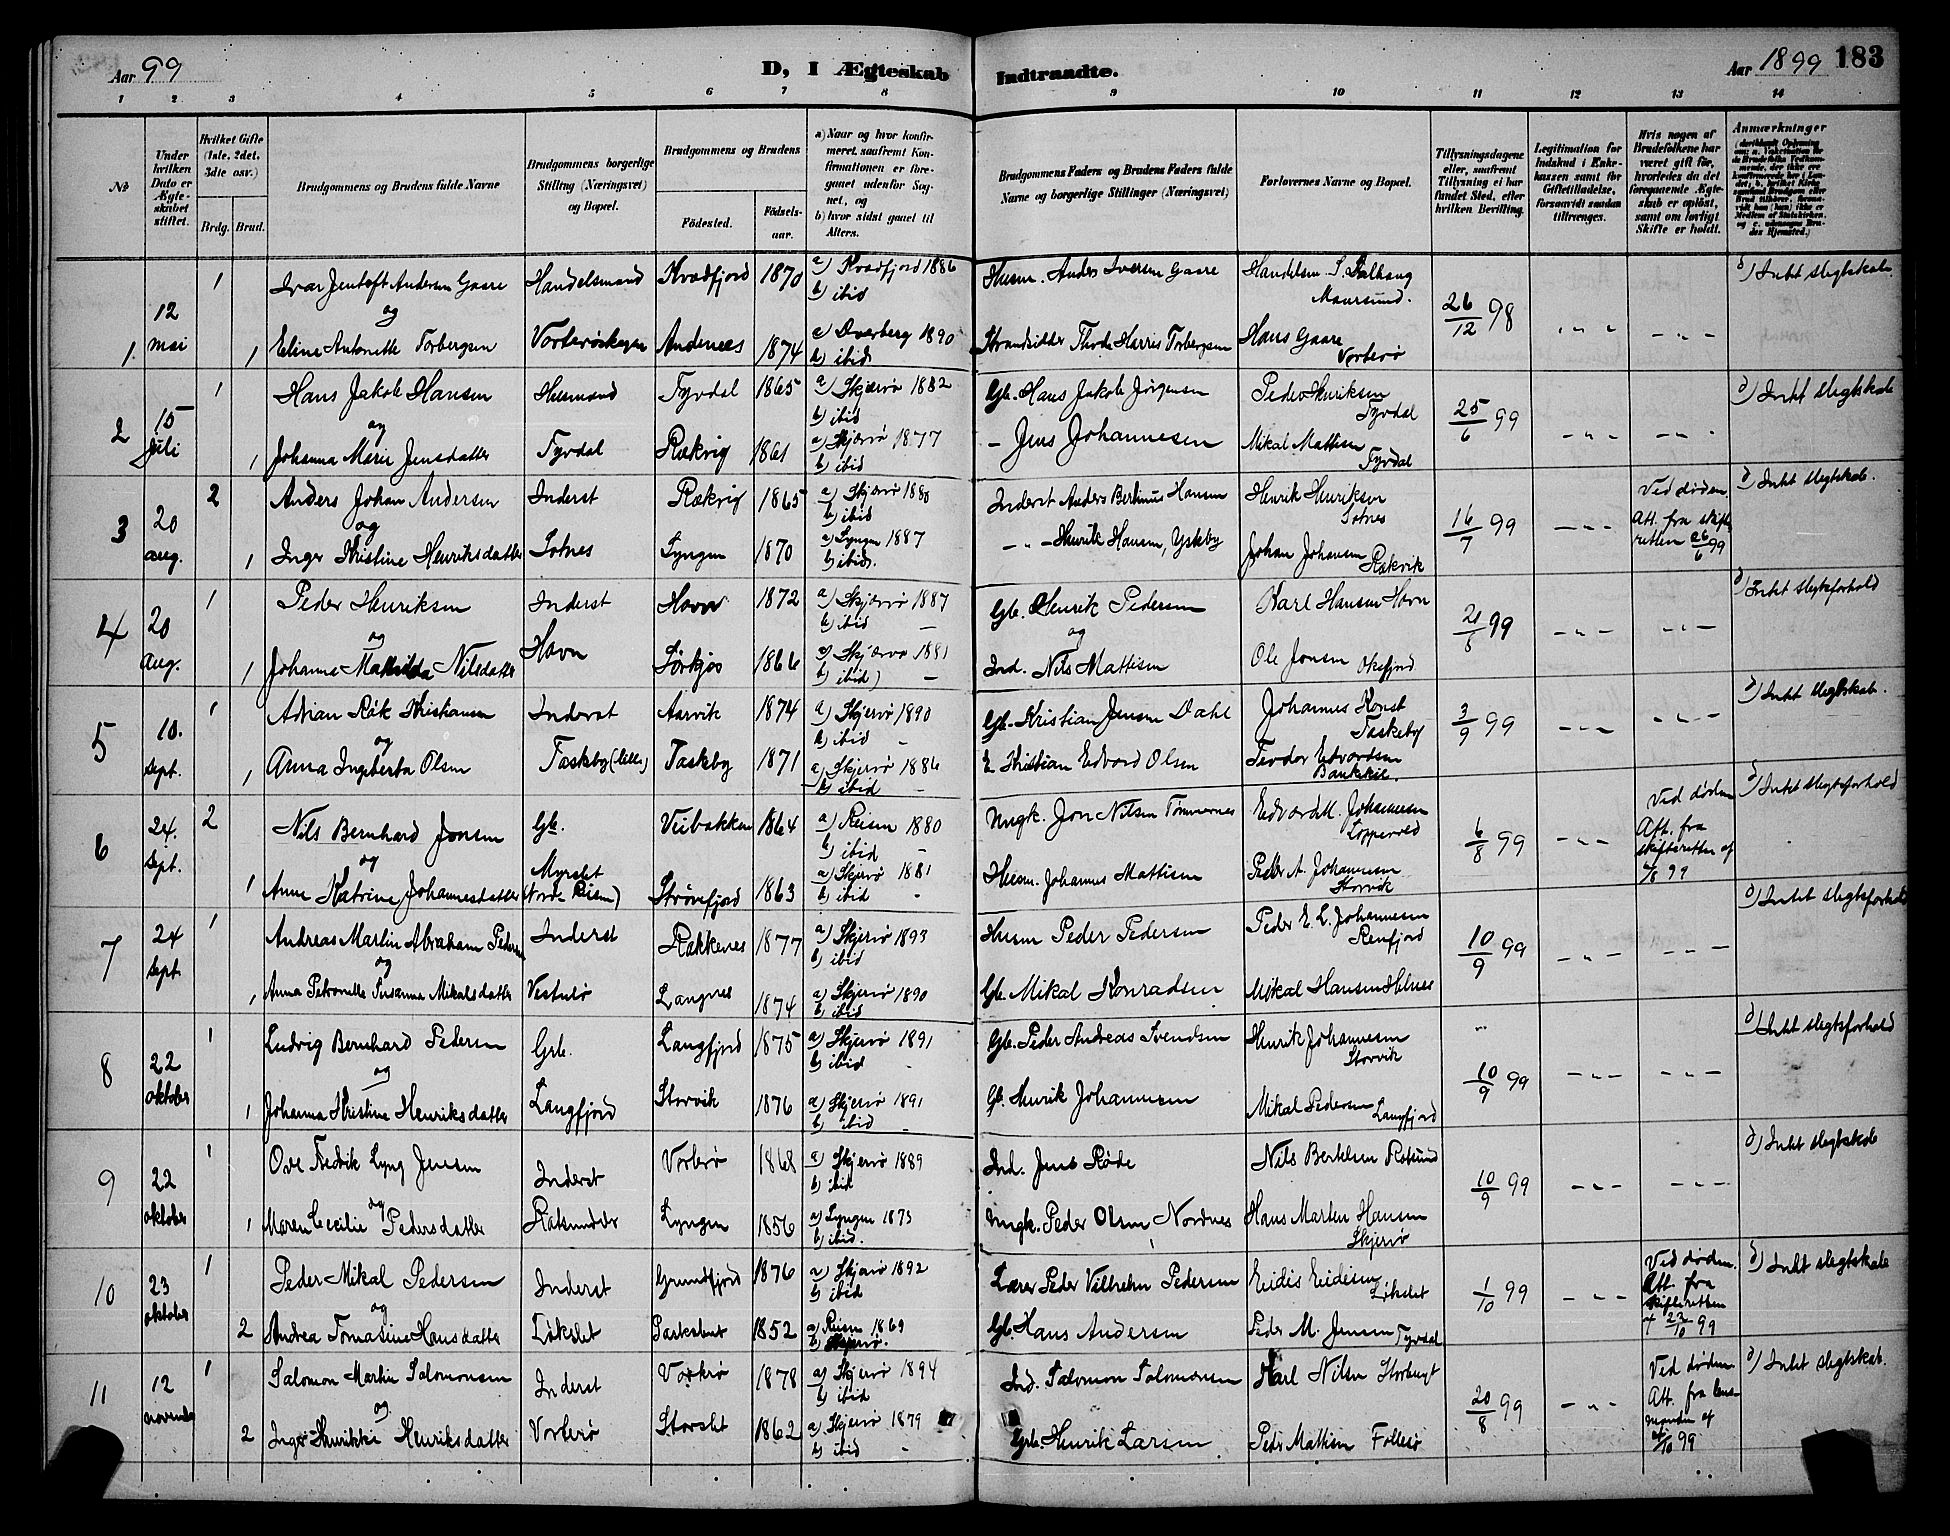 Aar 99 D, I Ægteskab Indtraadte. Aar 1899 183
1 2 3 4 5 6 7 8 9 10 11 12 13 14
№
Under hvilken Dato er Ægteskabet stiftet.
Hvilket Gifte (1ste, 2det, 3die osv.)
Brdg. Brud.
Brudgommens og Brudens fulde Navne
Brudgommens borgerlige Stilling (Næringsvei) og Bopæl.
Brudgommens og Brudens
Fødested. Fødselsaar.
a) Naar og hvor konfirmeret, saafremt Konfirmationen er foregaaet udenfor Sognet, og
b) hvor sidst gaaet til Alters.
Brudgommens Faders og Brudens Faders fulde Navne og borgerlige Stillinger (Næringsvei)
Forlovernes Navne og Bopæl.
Tillysningsdagene eller, saafremt Tillysning ei har fundet Sted, efter hvilken Bevilling.
Legitimation for Indskud i Enkekassen samt for Giftetilladelse, forsaavidt saadan tiltrænges.
Hvis nogen af Brudefolkene har været gift før, hvorledes da det foregaaende Ægteskab er opløst, samt om lovligt Skifte er holdt.
Anmærkninger
1. 12 mai 1 Ivar Jentoft Andersen Gaare Handelsmand Kvædfjord 1870 a) Kvædfjord 1886 b) ibid Husm. Anders Iversen Gaare Handelsm. S. Maursund. 26/12 98 d) Intet slegtskab
og
1 Eline Antonette Torbergsen Vorterøskagen Andenæs 1874 a) Dverberg 1890 b) ibid Strandsidder Harris Torbergsen Hans Gaare Vorterø
2 15 Juli 1 Hans Jakob Hansen Fyrdal 1865 a) Skjervø 1882 b) ibid Gb. Hans Jakob Jørgensen Peder Henriksen Fyrdal 25/6 99 d) Intet slegtskab
og
1 Johanna Marie Jensdatter Fyrdal Rækvig 1861 a) Skjervø 1877 b) ibid - Jens Johannesen Mikal Mattisen Fyrdal
3 20 aug. 2 Anders Johan Andersen Inderst Rækvig 1865 a) Skjervø 1880 b) ibid Inderst Anders Bertinus Hansen Henrik Henriksen Sotnes 16/7 99 Ved døden Att. fra skifteretten 26/6 99 d) Intet slegtskab.
og
1 Inger Kristine Henriksdatter Sotnes Lyngen 1870 a) Lyngen 1887 b) ibid. - " - Henrik Hansen, Johan Johansen Rækvik
4 20 aug. 1 Peder Henriksen Inderst Havn 1872 a) Skjervø 1887 b) ibid Gb. Henrik Pedersen Karl Hansen Havn 99 d) Intet slegtsforhold
og
1 Johanna Mathilda Nilsdatter Havn Sørkjos 1866 a) Skjervø 1881 b) ibid) Ind. Nils Mattisen Ole Jonsen Oksfjord
5 10. sept. 1 Adrian Røk Kristiansen Inderst Aarvik 1874 a) Skjervø 1890 b) ibid Gb. Kristian Jensen Dahl Johannes Konst Taskeby 3/9 99 d) Intet slegtskab.
og
1 Anna Ingeberta Olsen Taskby (lille) Taskby 1871 a) Skjervø 1886 b) ibid E. Kristian Edvard Olsen Teodor Edvardsen
6 24. sept. 2 Nils Bernhard Jonsen Gb. Veibakken 1864 a) Reisen 1880 b) ibid Ungk. Jon Nilsen Tømmernes Edvard M. Johannesen 6/8 99 Ved døden Att. fra skifteretten af 99 d) Intet slegtsforhold
og
1 Anne Katrine Johannesdatter Myrslet (Nordr Reisen) Strømfjord 1863 a) Skjervø 1881 b) ibid Husm. Johannes Mattisen Peder A. Johannesen Storvik
7 24 sept. 1 Andreas Martin Abraham Pedersen Inderst Rakkenes 1877 a) Skjervø 1893 b) ibid Husm Peder Pedersen Peder E. L. Johannesen Renfjord 10/9 99 d) Intet slegtsforhold
og
1 Anna Petronelle Susanna Mikalsdatter Vestnesø Langnes 1874 a) Skjervø 1890 b) ibid Gb. Mikal Konradsen Mikal Hansen Helnes
8 22 oktober 1 Ludvig Bernhard Pedersen Grb. Langfjord 1875 a) Skjervø 1891 b) ibid Gb. Peder Andreas Svendsen Henrik Johannesen Storvik 10/9 99 d) Intet slegtsforhold
og
1 Johanna Kristine Henriksdatter Langfjord Storvik 1876 a) Skjervø 1891 b) ibid Gb. Henrik Johannesen Mikal Pedersen Langfjord
9 22 oktober 1 Ove Fredrik Lyng Jensen Inderst Vorterø 1868 a) Skjervø 1889 b) ibid Ind. Jens Røde Nils Bertelsen Rotsund 10/9 99 d) Intet slegtskab
og
1 Maren Cecilie Pedersdatter Lyngen 1856 a) Lyngen 1873 b) ibid. Ungk. Peder Olsen Nordnes Hans Martin Hansen Skjervø
10 23 oktober 1 Peder Mikal Pedersen Inderst Grundfjord 1876 a) Skjervø 1892 b) ibid Lærer Peder Vilhelm Pedersen Eidis Eidisen Løkslet 1/10 99 Ved døden. Att. fra skifteretten af 22/10 99 d) Intet slegtskab
og
2 Andrea Tomasine Hansdatter Løkslet 1852 a) Reisen 1869 b) Skjervø. Gb. Hans Andersen Peder M. Jensen Fyrdal
11 12 november 1 Salomon Martin Salomonsen Inderst Vorterø 1878 a) Skjervø 1894 b) ibid Ind. Salomon Salomonsen Karl Nilsen 20/8 99 Ved døden Att. fra lensmanden af 99 d) Intet slegtskab.
og
2 Inger Henrikke Henriksdatter Vorterø Storslet 1862 a) Skjervø 1879 b) ibid Grb. Henrik Larsen Peder Mattisen Follesø